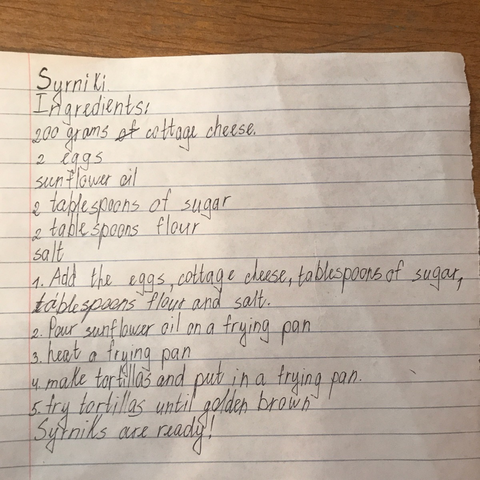 Syrniki.
Ingredients:
200 grams of cottage cheese.
2 eggs
sunflower oil
2 tablespoons of sugar
2 tablespoons flour
salt
1. Add the eggs, cottage cheese, tablespoons of sugar,
tablespoons flour and salt.
2. Pour sunflower oil on a frying pan
3. heat a frying pan
4. make tortillas and put in a frying pan.
5. fry tortillas until golden brown
Syrniks are ready!